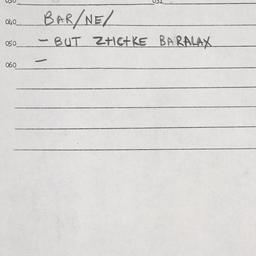 040 BAR/NE/
050 - BUT Z+IC+KE BARALAX
060 -